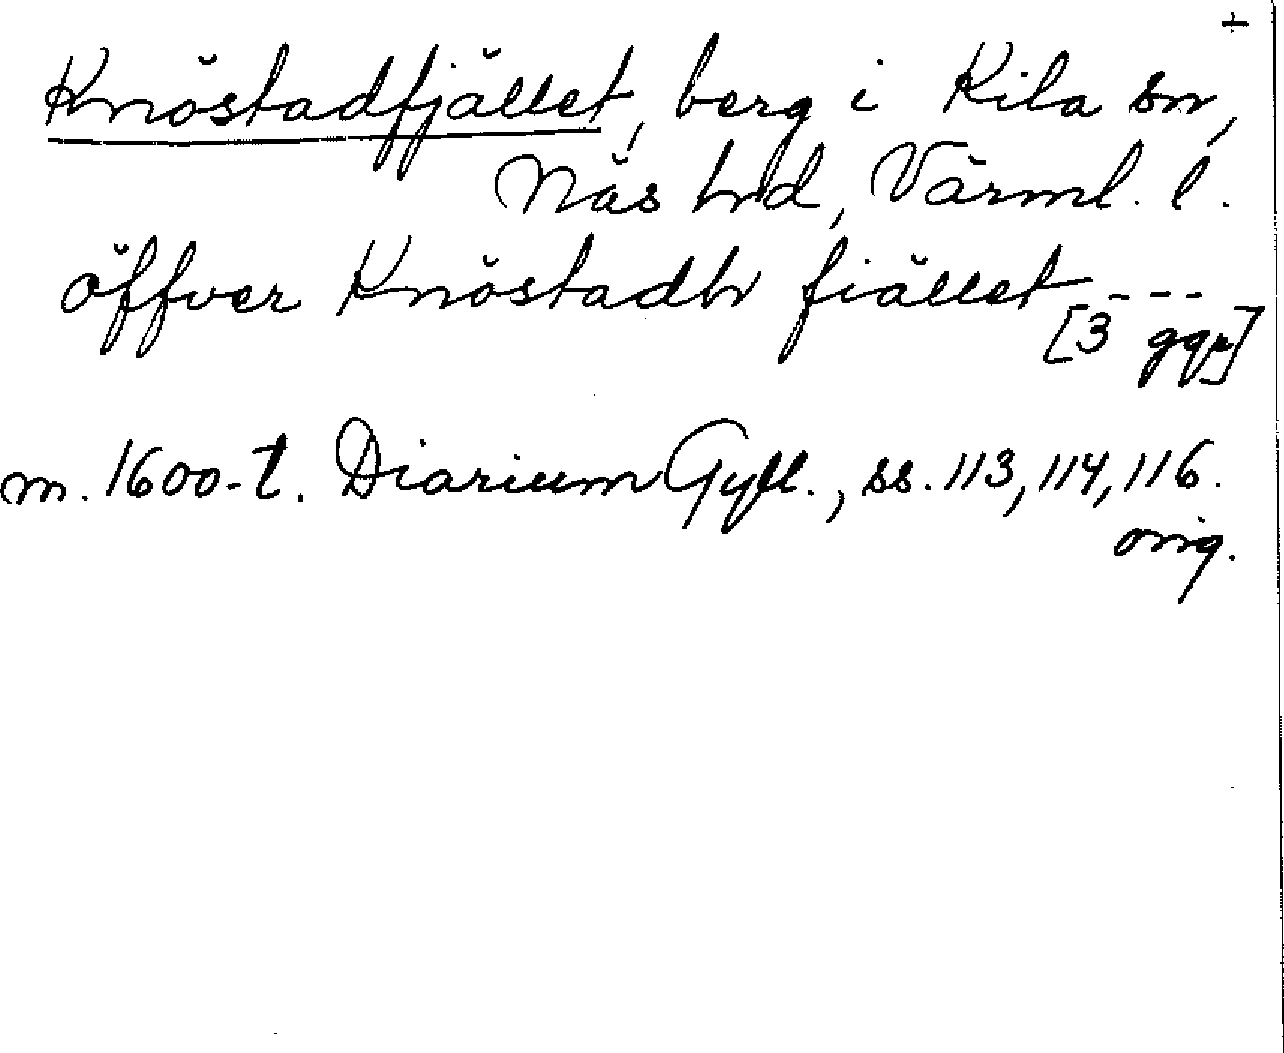 +
Knöstadfjället, berg i Kila sn,
Näs hd, Värml. l.
öffver Knöstadh fiället ----
[3 ggr]
m. 1600-t. Diarium Gyll., ss. 113, 114, 116.
orig.